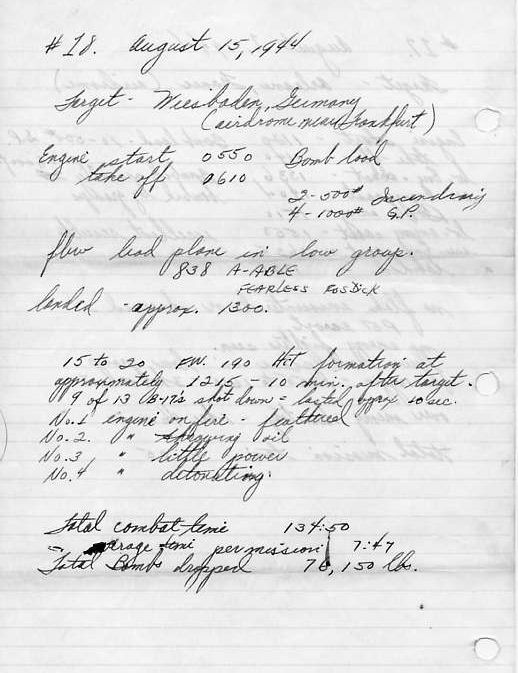 #18. August 15, 1944
Target - Wiesbaden, Germany
(airdrome near Frankfurt)
Engine start 0550 Bomb load
take off 0610
2-500# Incendiary
4-1000# G.P.
flew lead plane in low group.
838 A-ABLE
FEARLESS FOSDICK
landed - approx. 1300.
15 to 20 FW. 190 Hit formation at
approximately 1215 - 10 min. after target.
9 of 13 B-17's shot down = lasted approx 10 sec.
No.1 engine on fire - feathered
No.2. " throwing oil
No.3, " little power
No.4 " detonating.
Total combat time 134:50
average time per mission 7:47
Total Bombs dropped 76,150 lbs.